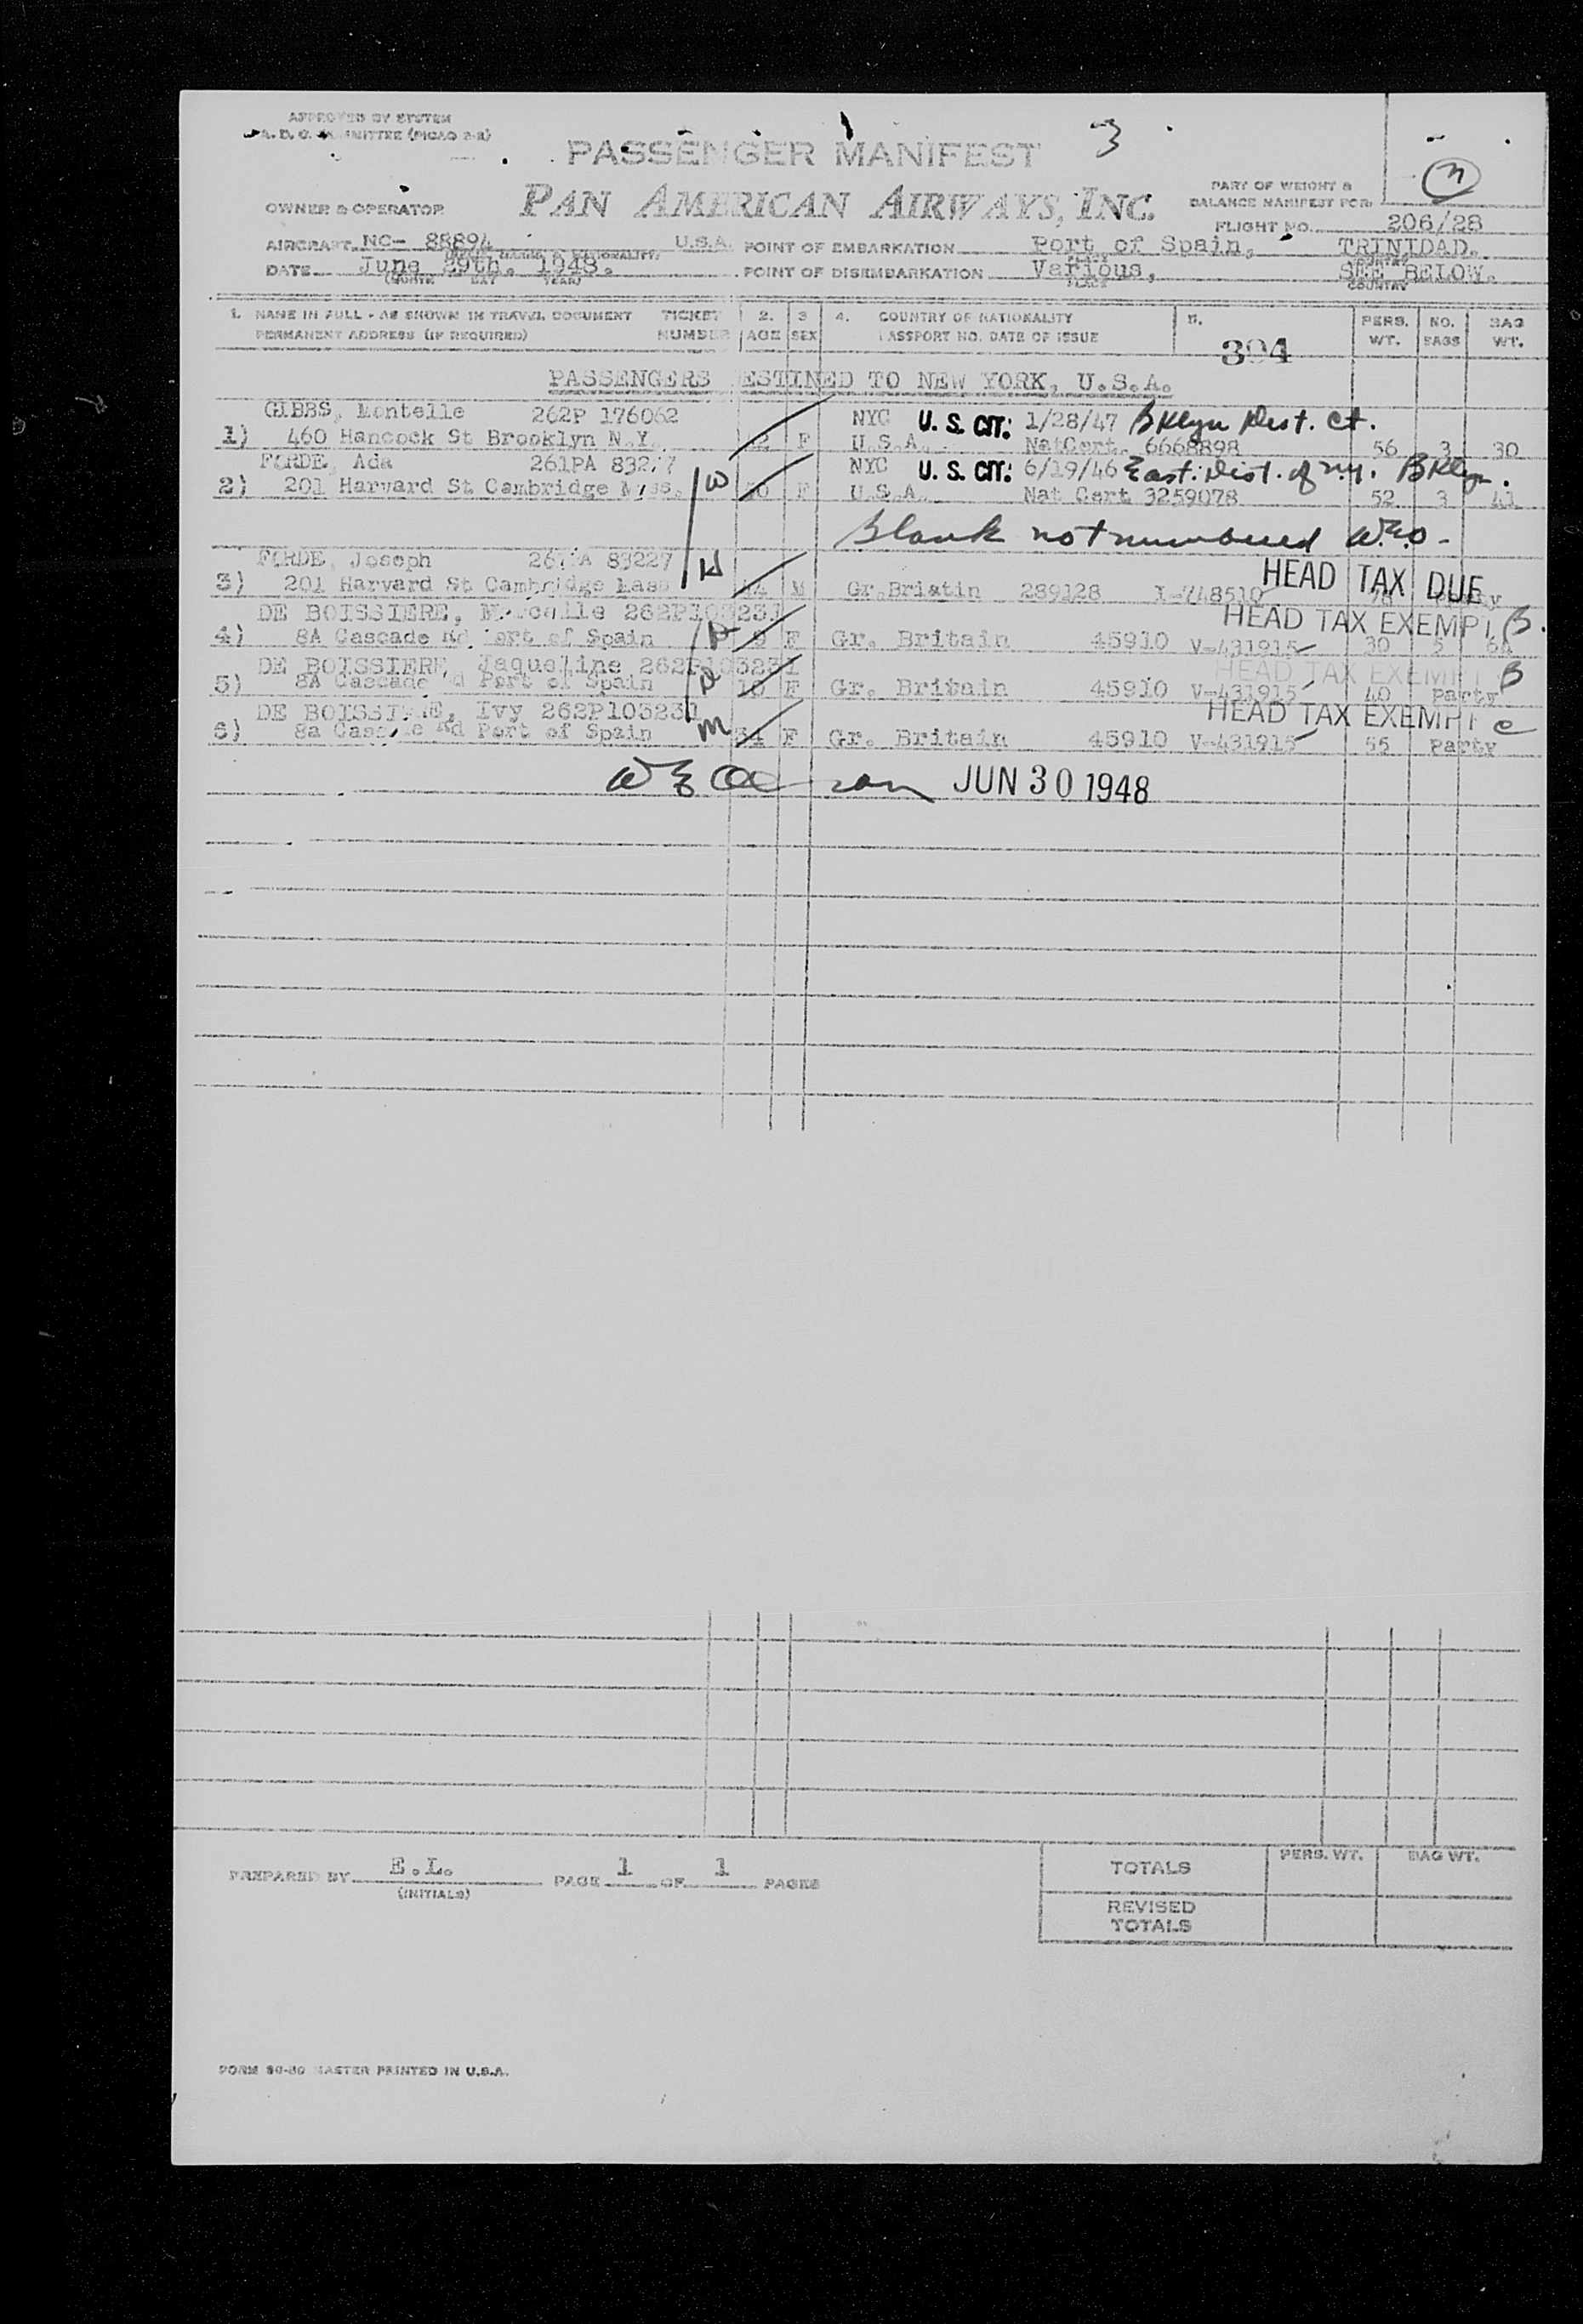 APPROVED BY SYSTEM
(PICAO 2-2)
PASSENGER MANIFEST
3
PAN AMERICAN AIRWAYS, INC.
PART OF WEIGHT &
BALANCE MANIFEST FOR
OWNER & OPERATOR
FLIGHT NO. 206/28
AIRCRAFT NC- 88894 U.S.A. POINT OF EMBARKATION Port of Spain, TRINIDAD.
DATE June 29th. 1948. POINT OF DISEMBARKATION Various, SEE BELOW.
(MONTH DAY YEAR) PLACE COUNTRY
1. NAME IN FULL - AS SHOWN IN TRAVEL DOCUMENT TICKET 2. 3 4. COUNTRY OF NATIONALITY 5. PERS. NO. BAG
PERMANENT ADDRESS (IF REQUIRED) NUMBER AGE SEX PASSPORT NO. DATE OF ISSUE WT. BAGS WT.
394
PASSENGERS ESTINED TO NEW YORK, U.S.A.
GIBBS, Montelle 262P 176062 NYC U. S. CIT: 1/28/47 Bklyn Dist. Ct.
1) 460 Hancock St Brooklyn N.Y. F U.S.A. NatCert. 6668898 56 3 30
FORDE, Ada 261PA NYC U. S. CIT: 6/19/46 East. Dist. of N.Y. Bklyn.
2) 201 Harvard St Cambridge W F U.S.A. Nat Cert 3259078 52 3 41
Blank not numbered W.E.O-
FORDE, Joseph 83227 HEAD TAX DUE
3) 201 Harvard St Cambridge Mass H M Gr.Briatin 289128 I-748510
DE BOISSIERE, HEAD TAX EXEMPT B.
4) 8A Cascade Rd Port of Spain 9 F Gr. Britain 45910 V-431915 30 5 64
DE BOISSIERE, Jaqueline HEAD TAX EXEMPT B
5) 8A Cascade d Port of Spain 10 F Gr. Britain 45910 V-431915 40 Party
DE BOISSI E, Ivy 262P103231 HEAD TAX EXEMPT C
6) 8a Rd Port of Spain M 34 F Gr. Britain 45910 V-431915 55 Party
JUN 30 1948
PREPARED BY E.L. PAGE 1 OF 1 PAGES
(INITIALS)
TOTALS PERS. WT. BAG WT.
REVISED
TOTALS
FORM MASTER PRINTED IN U.S.A.